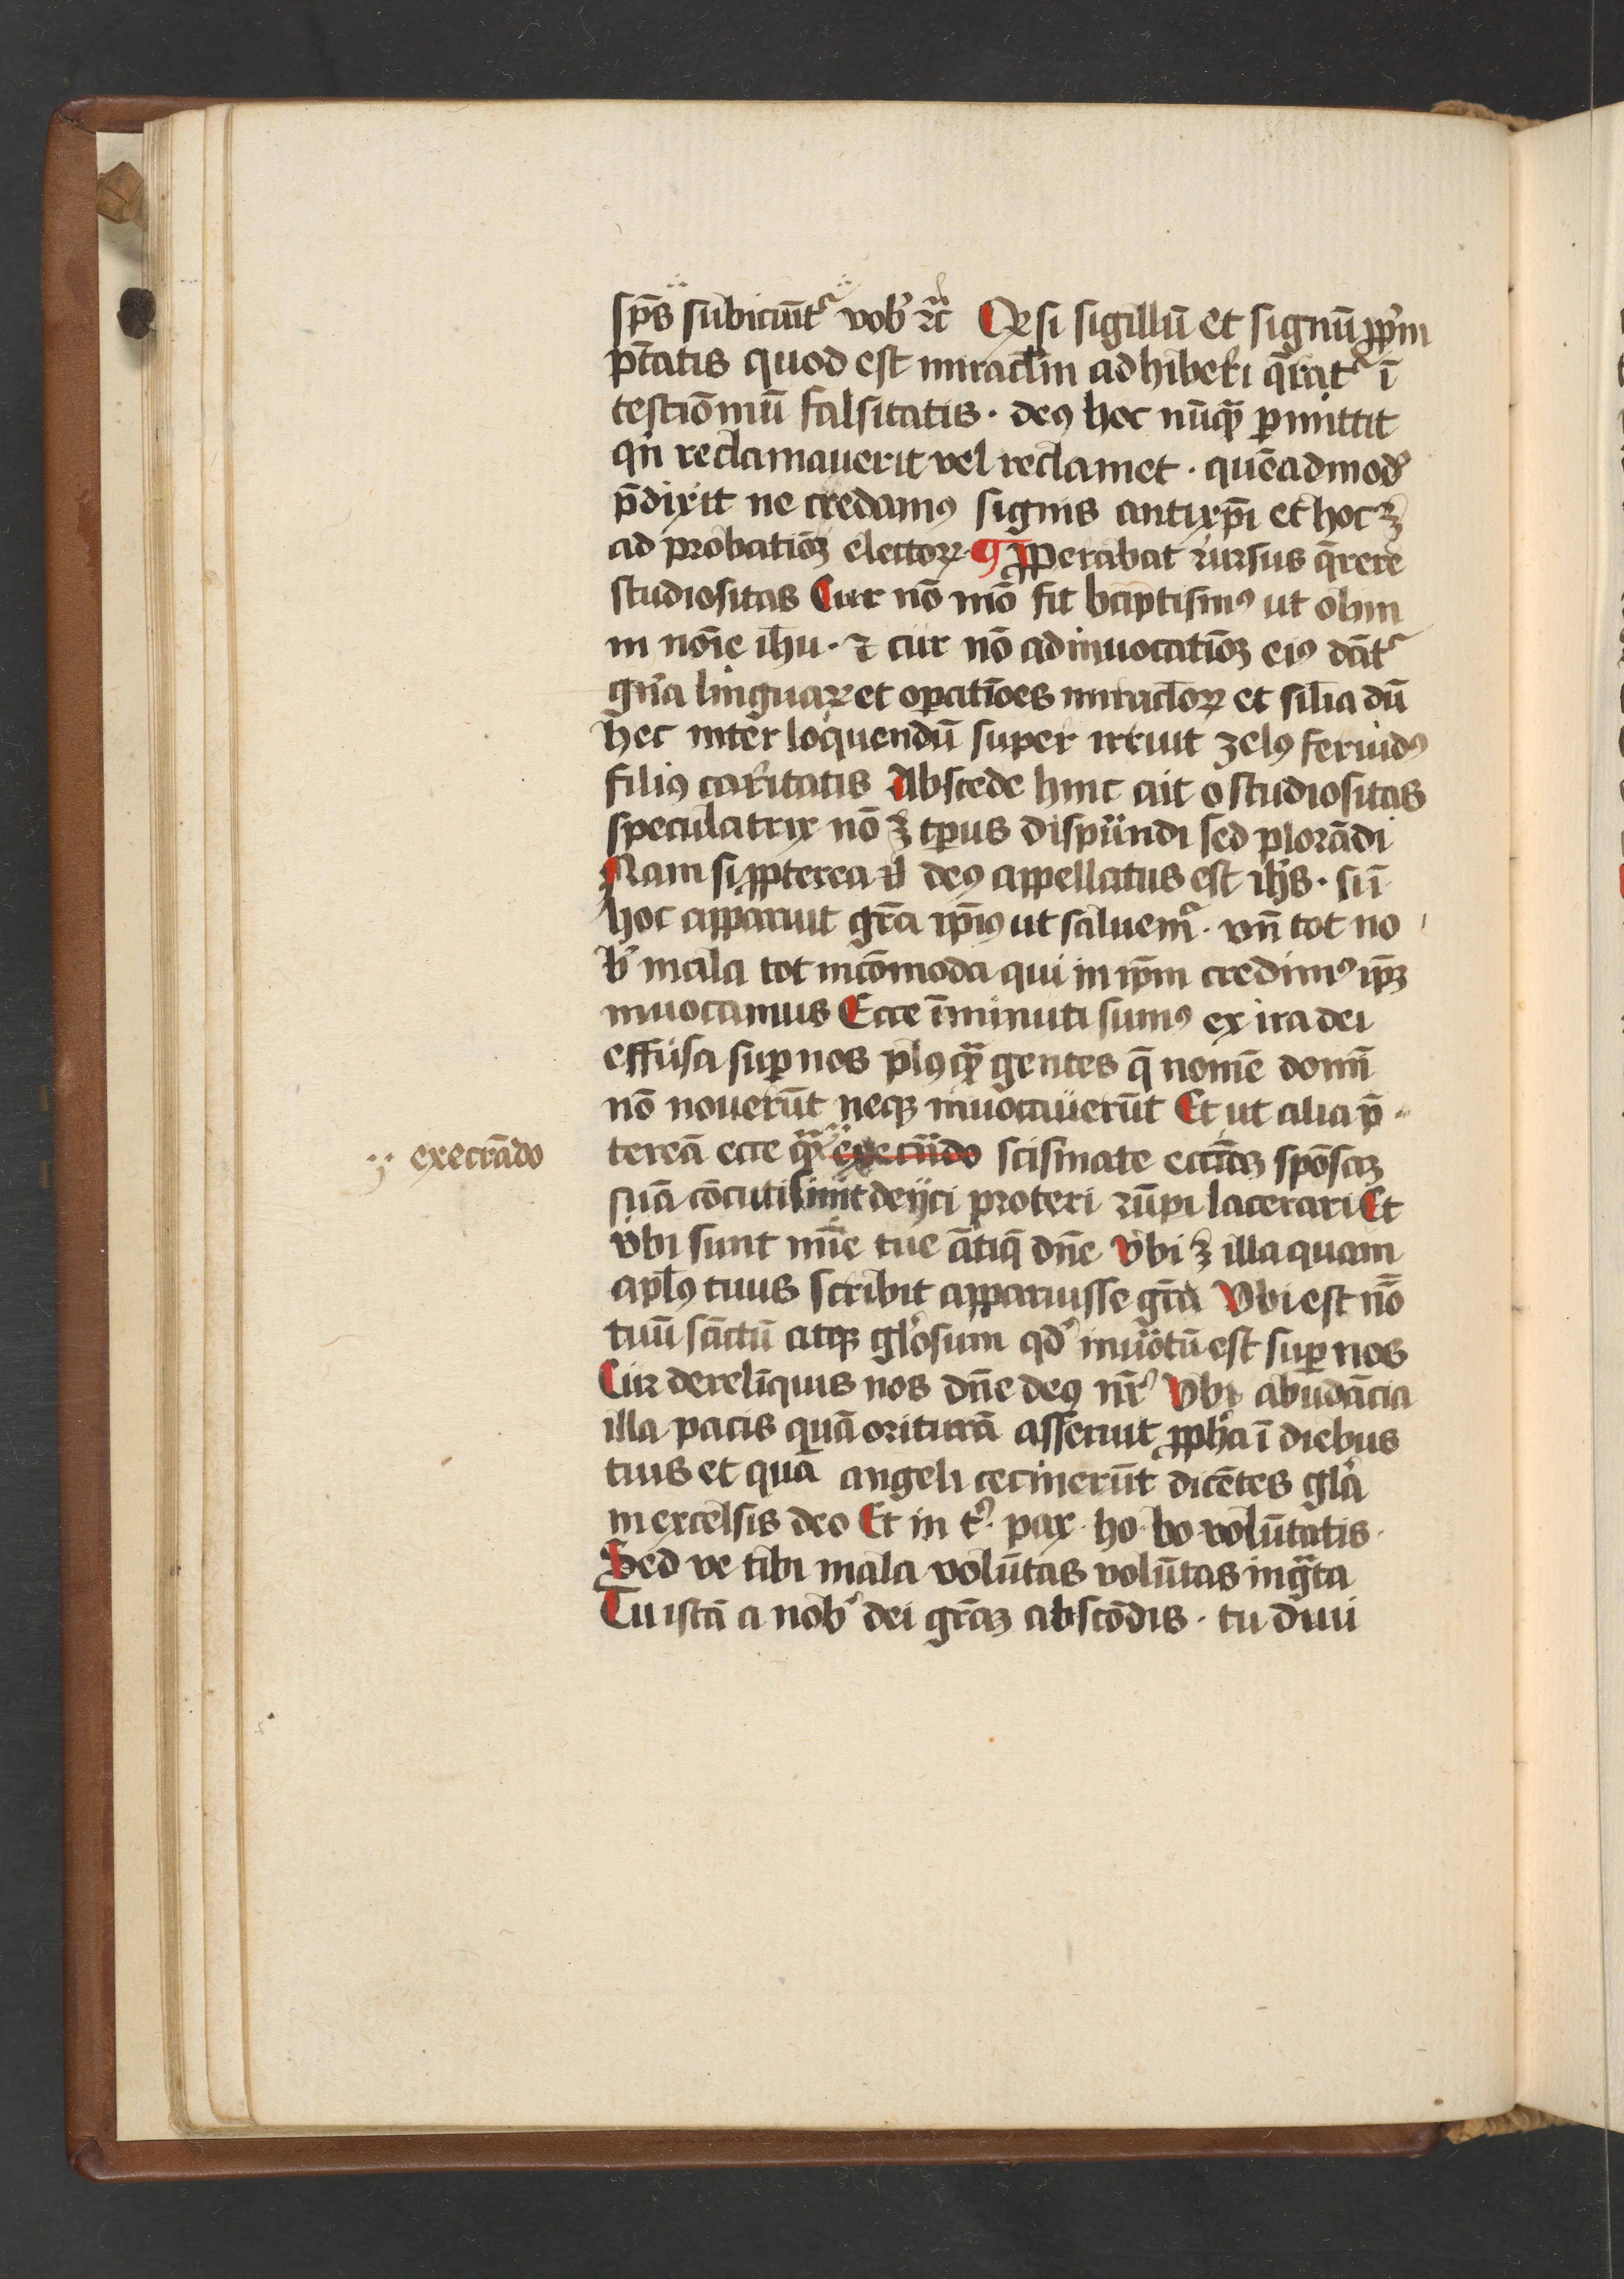 sp̄s subiciūt᷑ vob᷒ ⁊c̄ Qꝫ si sigillū et signū ꝓpͥm
pt̄atis quod est miracl̄m adhiberi q̄rat᷑ ī
testiōniū falsitatis · deꝰ hoc nūqꝫ ꝑmittit
qn̄ reclamauerit vel reclamet · quēadmod᷒
p̄dixit ne credamꝰ signis antixp̄i et hoc ꝫ
ad probatiōꝫ electoꝝ ¶ Ꝓperabat rursus q̄rere
studiositas Cur nō mō fit baptismꝰ ut olim
in noīe ih̄u · ⁊ cur nō ad inuocatiōꝫ eiꝰ dāt᷑
gr̄a linguaꝝ et oꝑatiōes miracl̄oꝝ et sīlia dū
hec inter loquendū super irruit zelꝰ feruidꝰ
filiꝰ caritatis Abscede hinc ait o studiositas
speculatrix nō ꝫ tꝑus dispūndi sed plorādi
Nam si ꝓpterea deꝰ appellatus est ih̄s · sīī
hoc apparuit gr̄a ip̄iꝰ ut saluem᷑ · vn̄ tot no
b᷒ mala tot incōmoda qui in ip̄m credimꝰ ip̄ꝫ
inuocamus Ecce īminuti sumꝰ ex ira dei
effusa suꝑ nos plꝰqꝫ gentes q̄ nomē domī
nō nouerūt neqꝫ inuocauerūt Et ut alia p̄
tereā ecce execrādo scismate ecciāꝫ spōsaꝫ
execrādo
suā cōcuti sinit deijci proteri rūpi lacerari Et
vbi sunt mīe tue ātiq̄ dn̄e Vbi ꝫ illa quam
apl̄ꝰ tuus scribit apparuisse gr̄a Vbi est nō
tuū sāctū atqꝫ gl̄osum qd᷒ inuōtū est suꝑ nos
Cur derelīquis nos dn̄e deꝰ nr̄ Vbi abūdācia
illa pacis quā orituram asseruit ꝓph̄a ī diebus
tuis et quā angeli cecinerūt dicētes gl̄a
in excelsis deo Et in t᷒ · pax · ho · bo volūtatis ·
Sed ve tibi mala volūtas volūtas ingᷓta
Tu istā a nob᷒ dei gr̄aꝫ abscōdis · tu diui